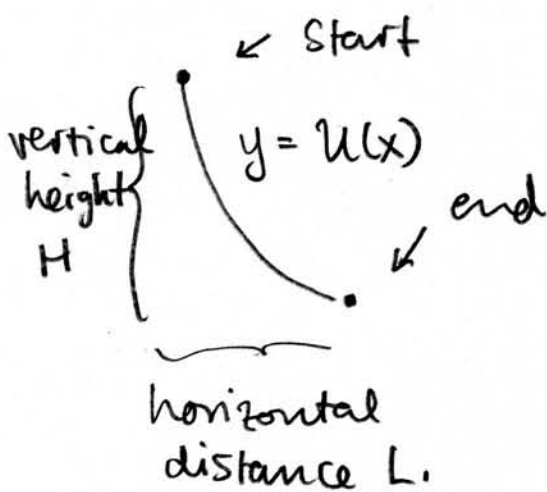 start
vertical
height
H
y = u(x)
end
horizontal
distance L.